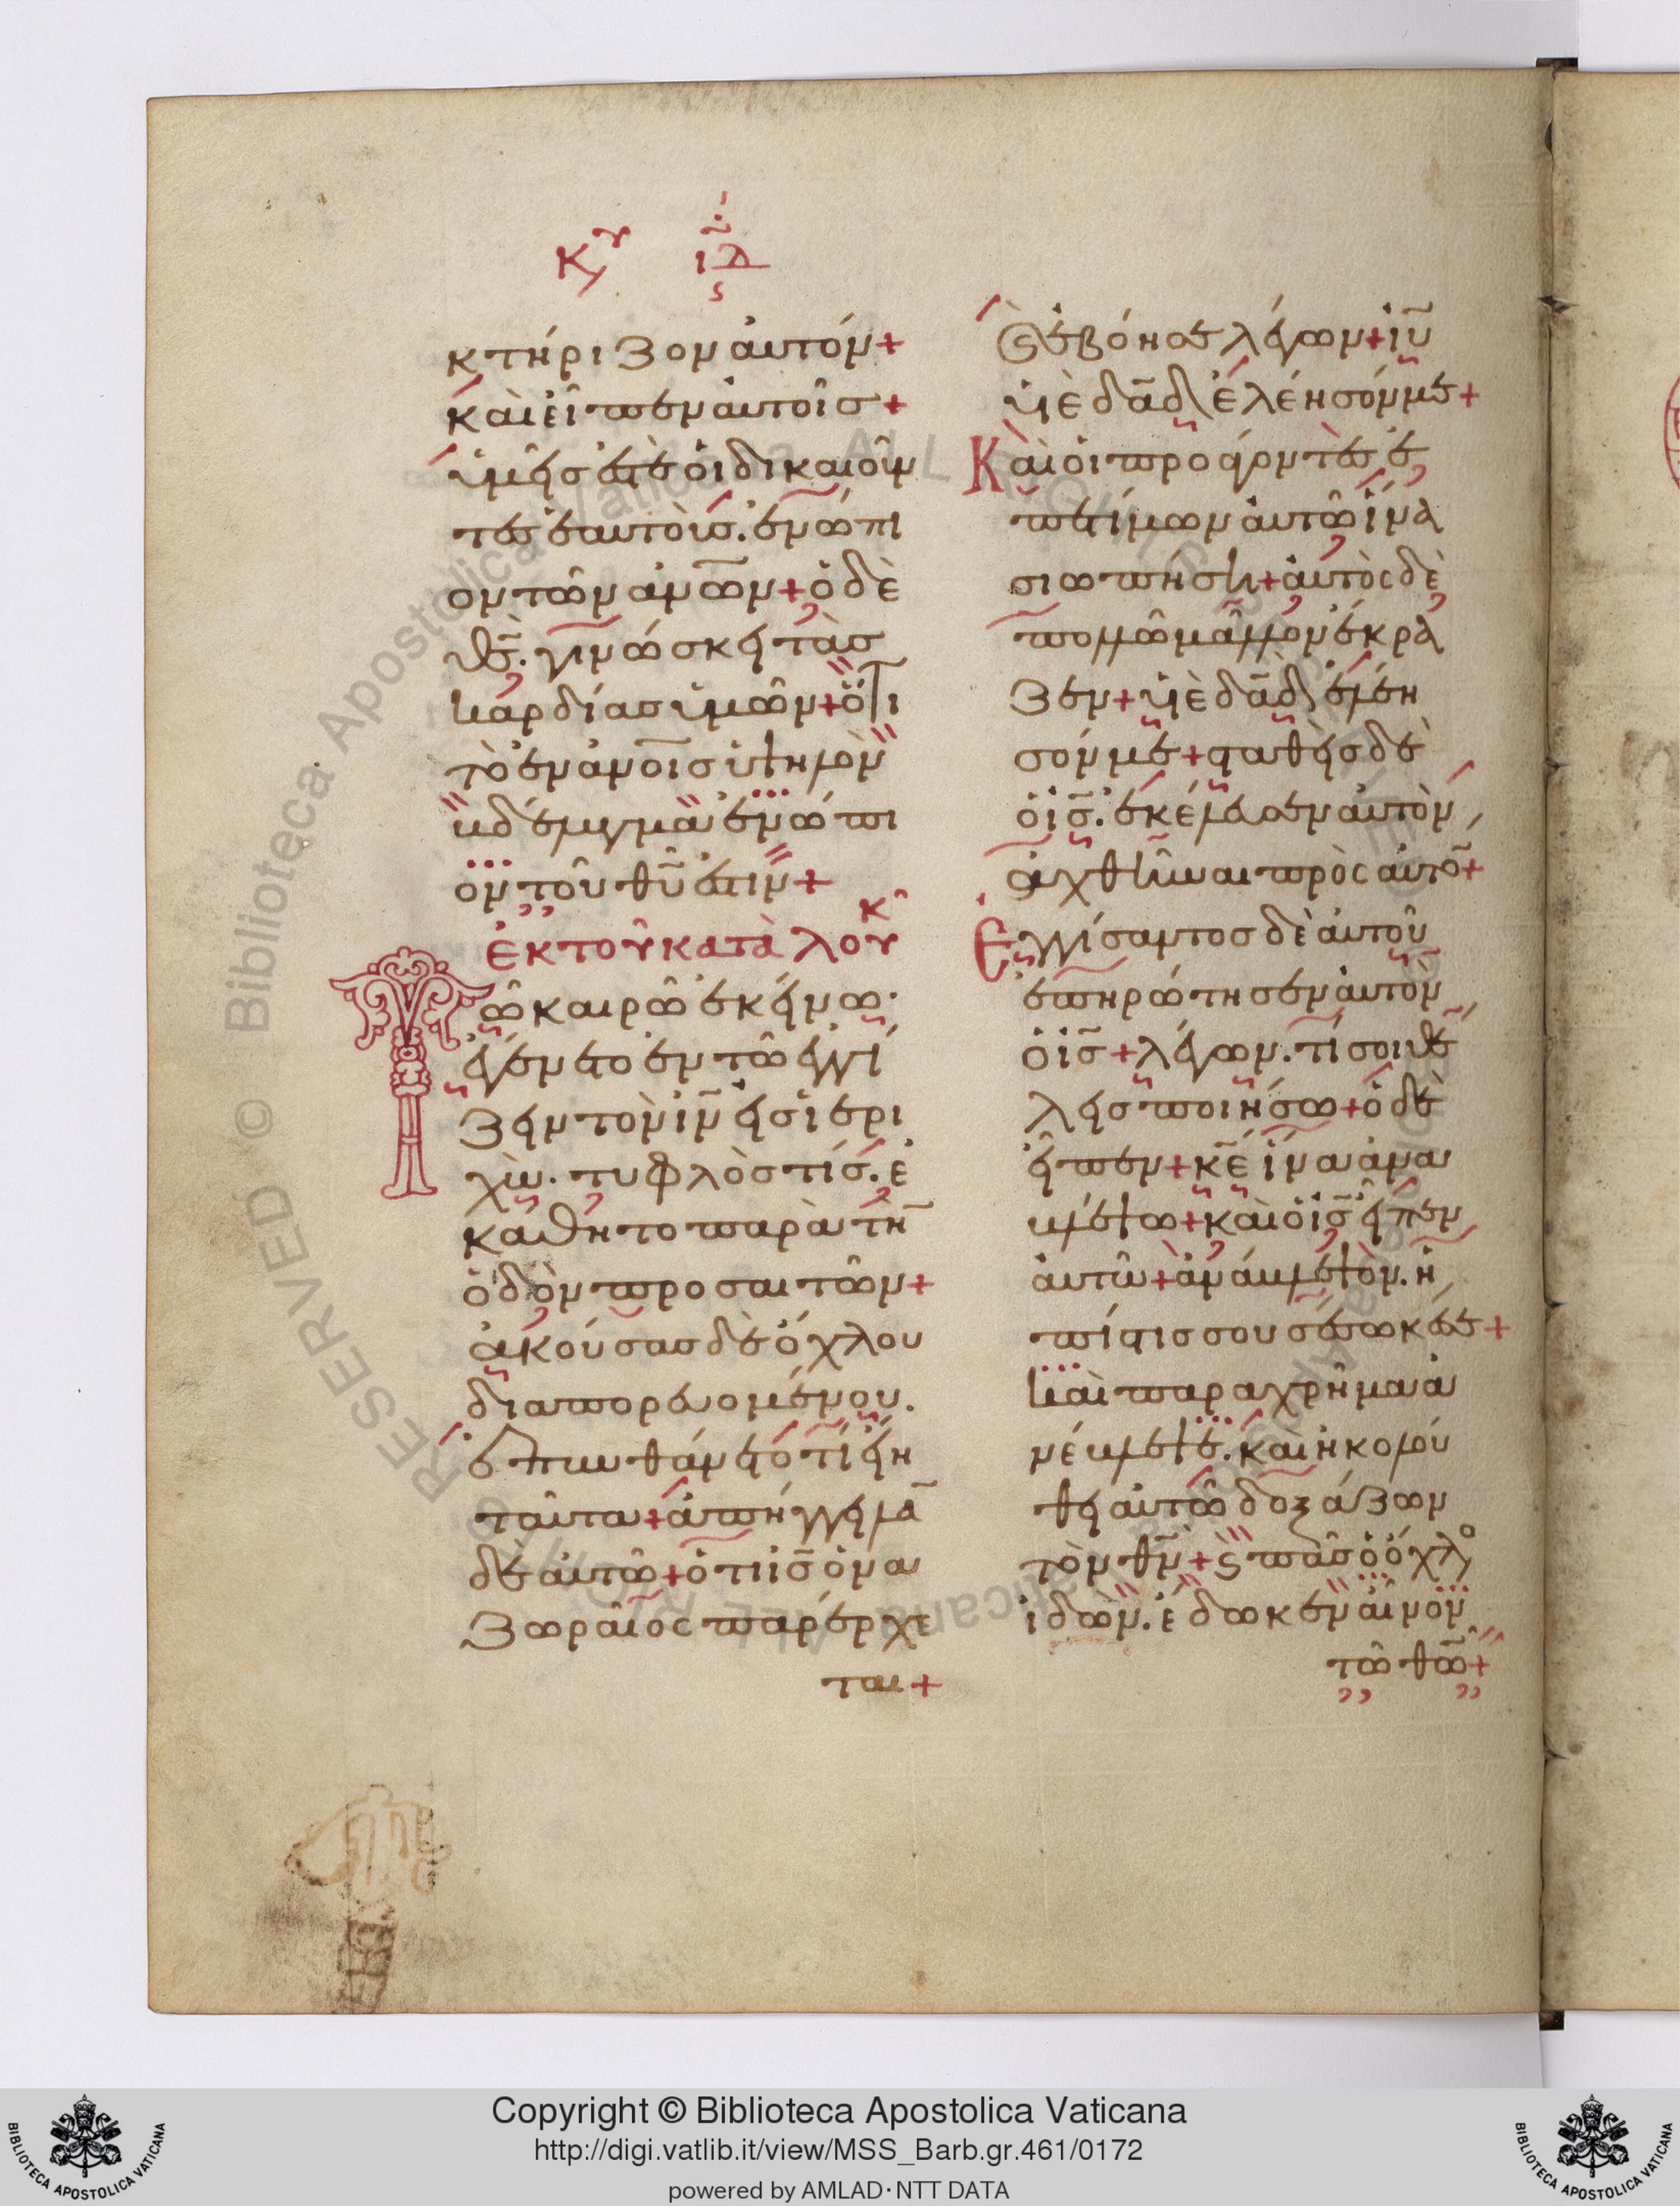 Κυ ιδ
κτήριζον αὐτόν+
καὶ εἶπεν αὐτοῖσ+
ὑμεῖσ ἐστὲ οἱ δικαιοῦν
τεσ ἑαυτοὺσ. ἐνώπι
ον τῶν ἀν̅ων+ ὁ δὲ
θς̅. γινώσκει τὰσ
καρδίασ ὑμῶν+ ὅτι
τὸ ἐν ἀν̅οισ ὑψηλὸν
βδέλυγμα ἐνώπι
ον τοῦ θυ̅ ἐστιν+
ἐκ τοῦ κατὰ λουκ
Τῶ καιρῶ ἐκείνω·
ἐγένετο ἐν τῶ ἐγγί
ζειν τὸν ιν̅ εἰσ ἱερι
χὼ. τυφλόσ τισ. ἐ
κάθητο παρὰ τὴ̅
ὁδὸν προσαιτῶν+
ἀκούσασ δὲ ὄχλου
διαπορευομένου.
ἐπυνθάνετο τί εἴη
ταῦτα+ ἀπήγγειλα̅
δὲ αὐτῶ+ ὅτι ισ̅ ὁ να
ζωραῖος παρέρχε
ται+
Καὶ ἐβόησε λέγων+ ιυ̅
υἱὲ δα̅δ ἐλέησόν με+
Καὶ οἱ προάγοντεσ ἐ
πετίμων αὐτῶ ἵνα
σιωπήση+ αὐτὸς δὲ
πολλῶ μᾶλλον ἔκρα
ζεν+ υἱὲ δα̅δ ἐλέη
σόν με+ σταθεὶσ δὲ
ὁ ισ̅. ἐκέλευσεν αὐτὸν
ἀχθῆναι πρὸς αὐτο̅+
Ἐγγίσαντοσ δὲ αὐτοῦ
ἐπηρώτησεν αὐτὸν
ὁ ισ̅+ λέγων. τί σοι θέ
λεισ ποιήσω+ ὁ δὲ
εἶπεν+ κε̅ ἵνα ἀνα
βλέψω+ καὶ ὁ ισ̅ εἶπεν
αὐτῶ+ ἀνάβλεψον. ἡ
πίστισ σου σέσωκέ σε+
Καὶ παραχρῆμα ἀ
νέβλεψε. καὶ ἠκολού
θει αὐτῶ δοξάζων
τὸν θν̅+ ϗ πᾶσ ὁ ὄχλο
ἰδὼν. ἔδωκεν αἶνον
τῶ θω̅+
Copyright © Biblioteca Apostolica Vaticana
http://digi.vatlib.it/view/MSS_Barb.gr.461/0172
powered by AMLAD·NTT DATA
BIBLIOTECA APOSTOLICA VATICANA
BIBLIOTECA APOSTOLICA VATICANA